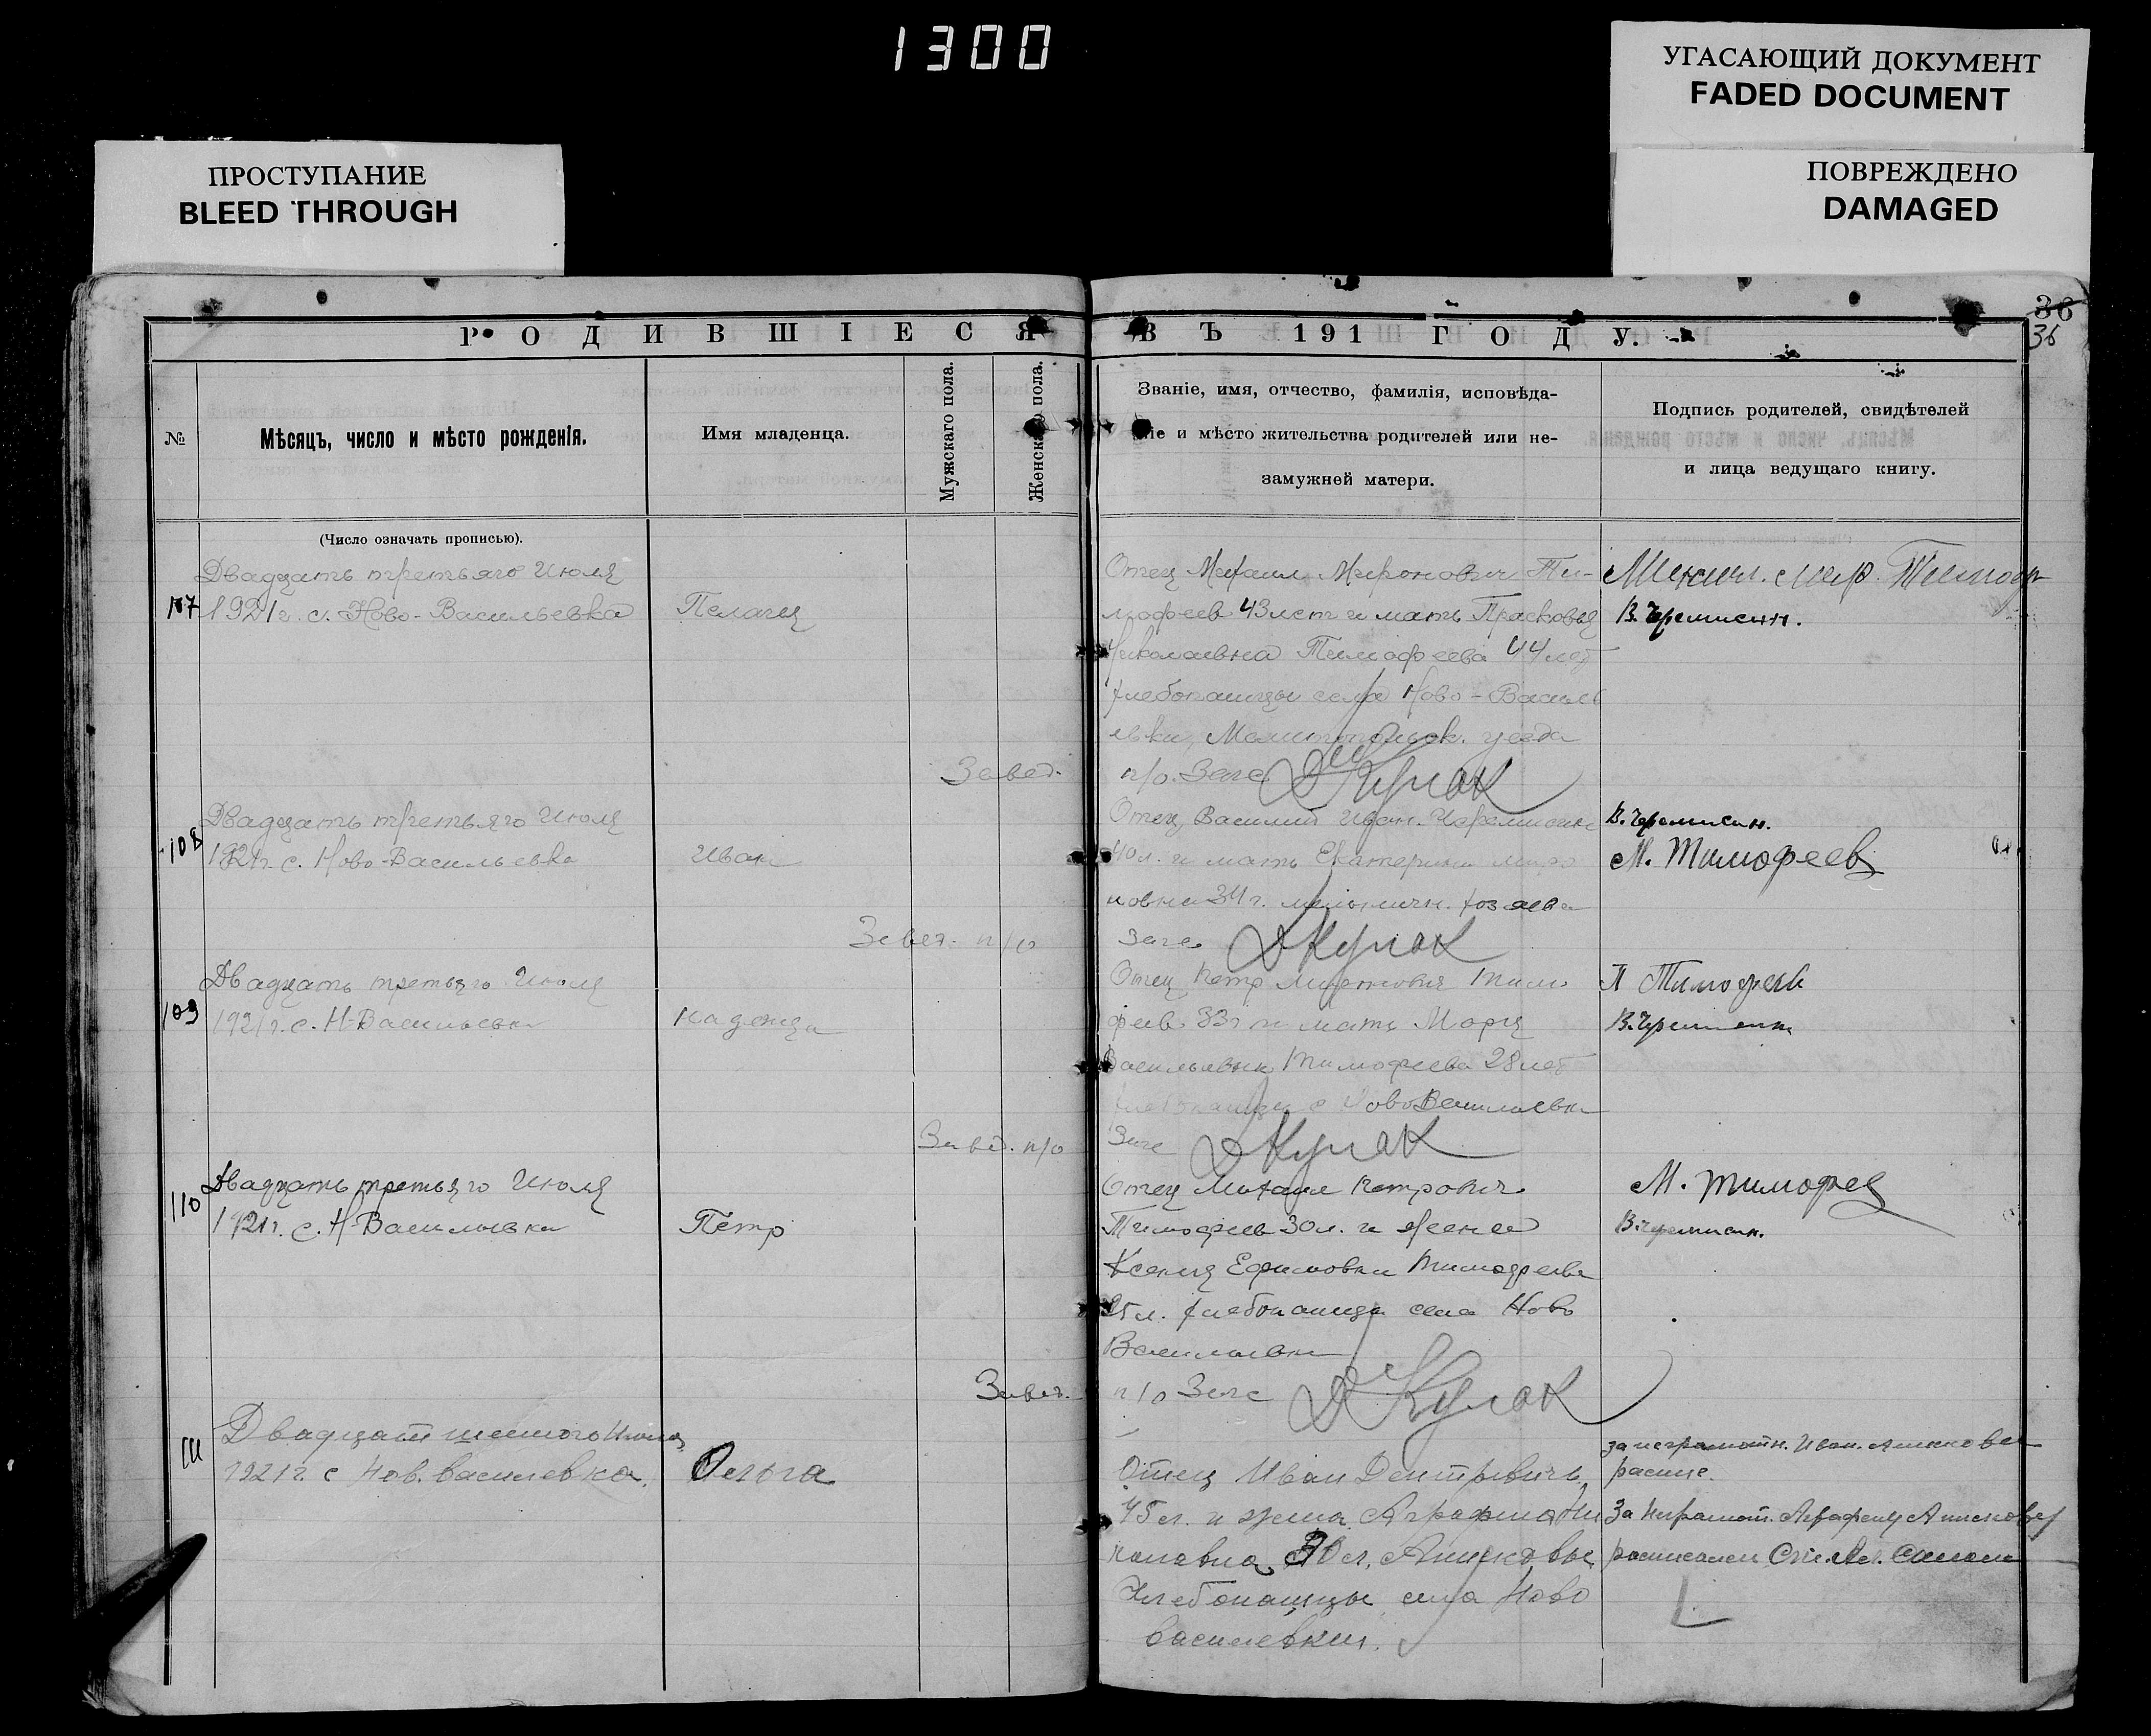 1300
УГАСАЮЩИЙ ДОКУМЕНТ
FADED DOCUMENT
ПРОСТУПАНИЕ
BLEED THROUGH
ПОВРЕЖДЕНО
DAMAGED
36
36
РОДИВШІЕСЯ ВЪ 191 ГОДУ.
№
Мѣсяцъ, число и мѣсто рожденія.
Имя младенца.
Мужскаго пола.
Женскаго пола.
Званіе, имя, отчество, фамилія, исповѣда-
ніе и мѣсто жительства родителей или не-
замужней матери.
Подпись родителей, свидѣтелей
и лица ведущаго книгу.
(Число означать прописью).
Двадцать третьяго Июля
107 1921 г. с. Ново-Васильевка
Пелагия
Отец Михаил Миронович Ти-
мофеев 43 лет и мать Прасковья
Николаевна Тимофеева 44 лет
хлебопашцы села Ново-Василь
евки, Мелитопольск. уезда
Завед. п/о. Загс Кулак
В. Черемисин.
Двадцать третьяго Июля
108 1921 г. с. Ново-Васильевка
Иван
Отец Василий Иван. Черемисин
40 л. и мать Екатерина Миро
новна 34 г.
Завед. п/о Загс Кулак
В. Черемисин.
М. Тимофеев
Двадцать третьяго Июля
109 1921 г. с. Н-Васильевка
Надежда
Отец Петр Тимо
феев 33 г и мать Мария
Васильевна Тимофеева 28 лет
хлебопашцы с Ново Васильевки
Завед. п/о Загс Кулак
П Тимофеев
В. Черемисин
Двадцать третьяго Июля
110 1921 г. с. Н-Васильевка
Петр
Отец Михаил Петрович
Тимофеев 30 л. и жена
Ксения Ефимовна Тимофеева
25 л. хлебопашцы села Ново
Васильевки
Завед. п/о Загс Кулак
М. Тимофеев
В. Черемисин.
Двадцат шестого Июля
111 1921 г с Нов. Василевка.
Ольга
Отец Иван Дмитревичь
45 л. и жена Аграфина Ни
колавна 30 л.
Хлебопашцы села Ново
Василевки.
за неграмотн. Иван.
распис.
За неграмот.
росписалси